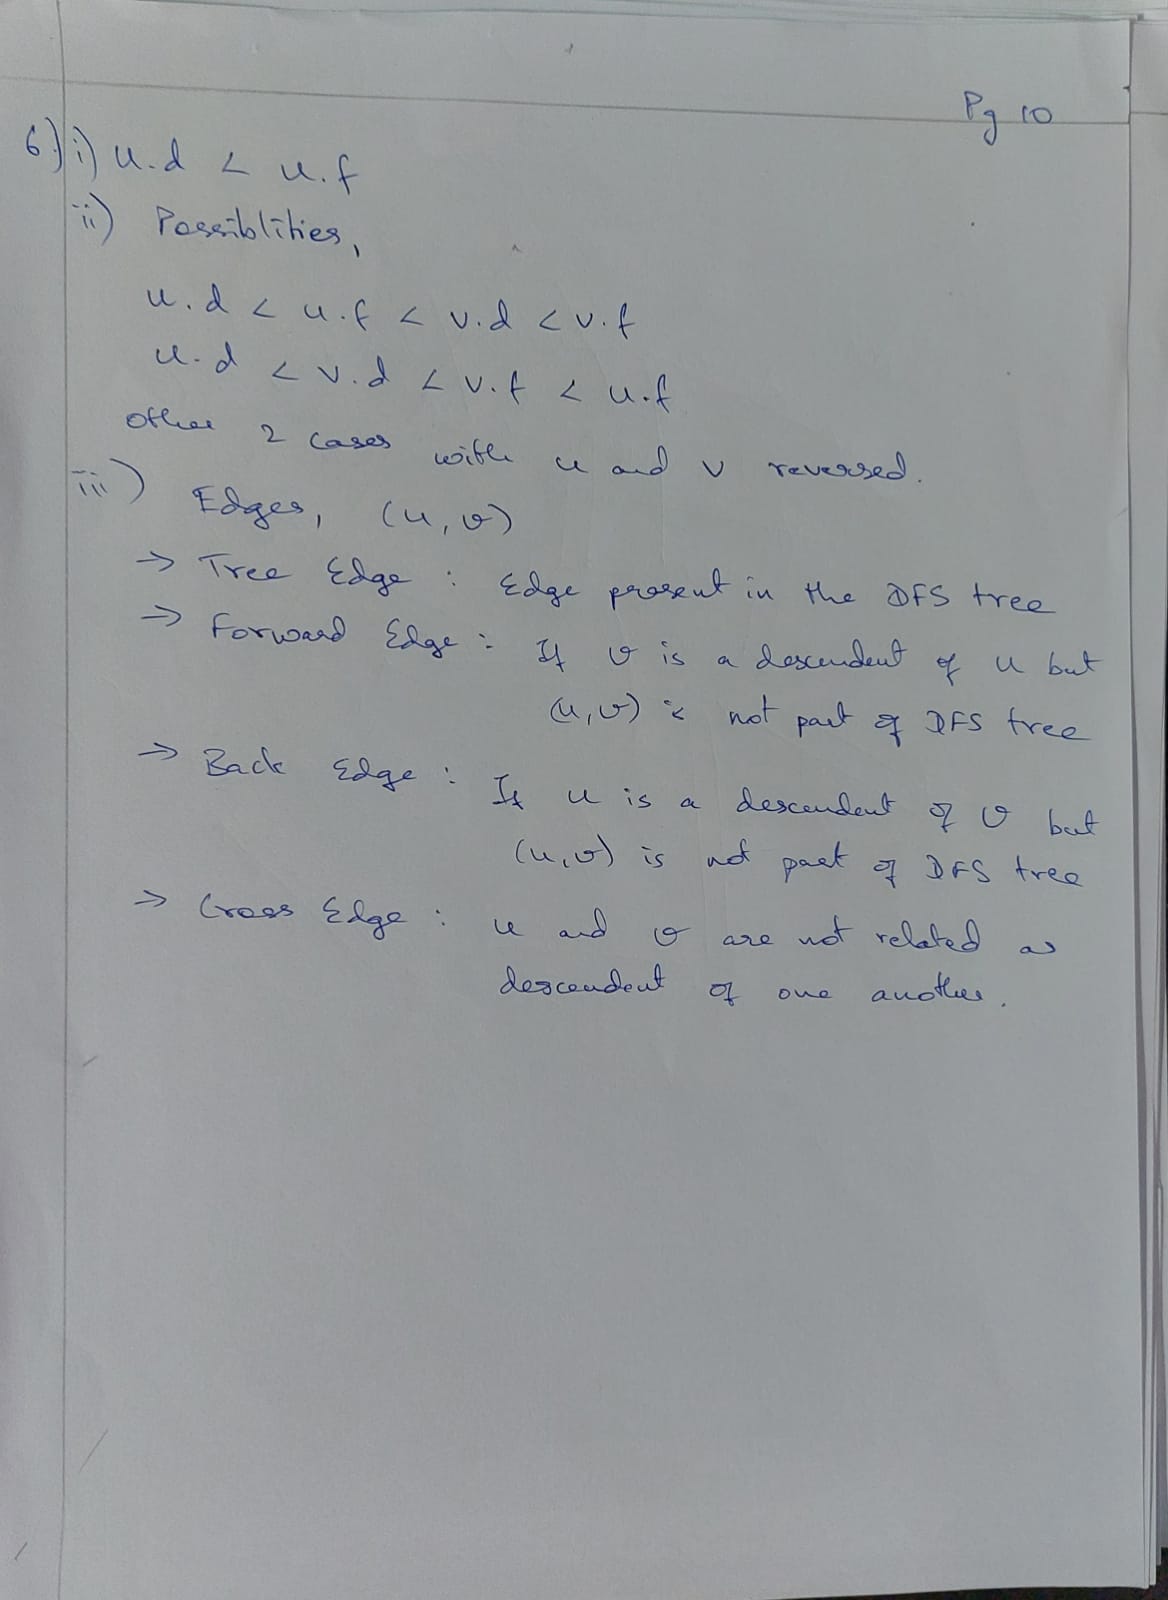 Pg 10
6) i) u.d < u.f
ii) Possiblities,
u.d < u.f < v.d < v.f
u.d < v.d < v.f < u.f
other 2 cases with u and v reversed.
iii) Edges, (u,v)
→ Tree Edge : Edge present in the DFS tree
→ Forward Edge : If v is a descendent of u but
(u,v) is not part of DFS tree
→ Back Edge : If u is a descendent of v but
(u,v) is not part of DFS tree
→ Cross Edge : u and v are not related as
descendent of one another.